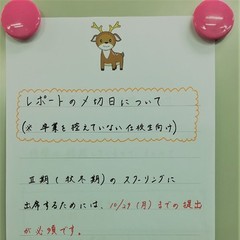 レポートの〆切日について
(※ 卒業を控えていない在校生向け)
Ⅲ期(秋冬期)のスクーリングに
出席するためには、10/29(月)までの提出
が必須です。